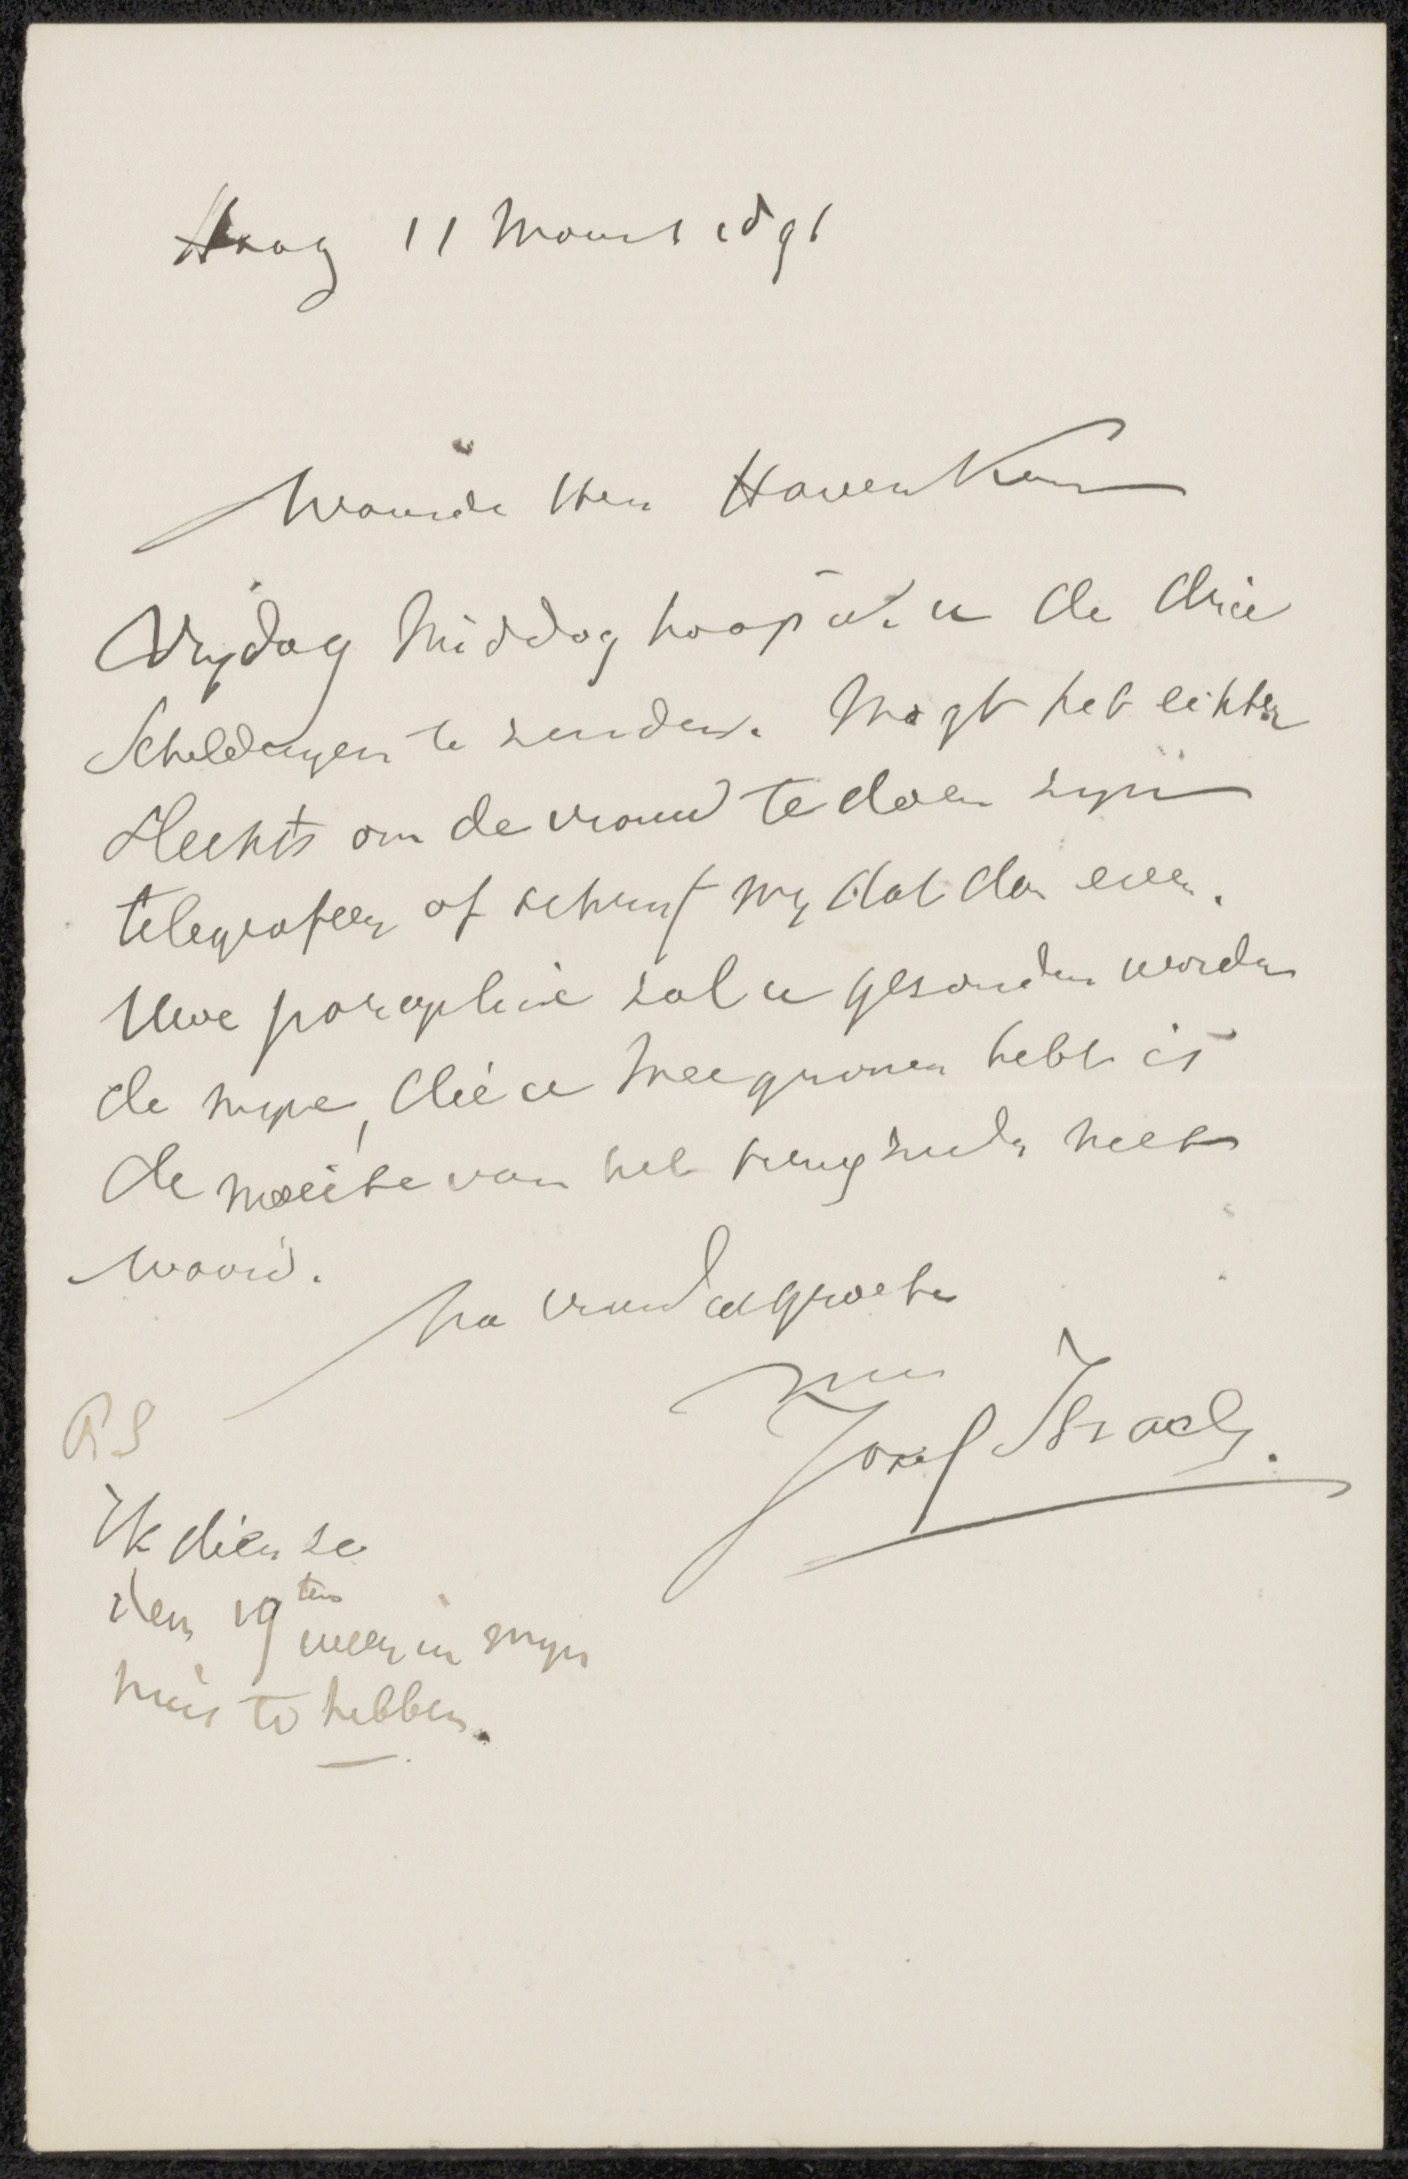 Haag 11 Maart 1891
Waarde Heer Haverkorn
Vrydag Middag hoop ik u de drie
Schilderyen te zenden. Mogt het echter
slechts om de vrouw te doen zyn
telegrafeer of schryf my dat dan even.
Uwe parapluie zal u gezonden worden
de myne, die u meegenomen hebt is
de moeite van het terugzenden niet
waard.
Na vriendengroeten
Jozef Israels.
PS
Ik dien ze
den 19ten weer in myn
huis te hebben.